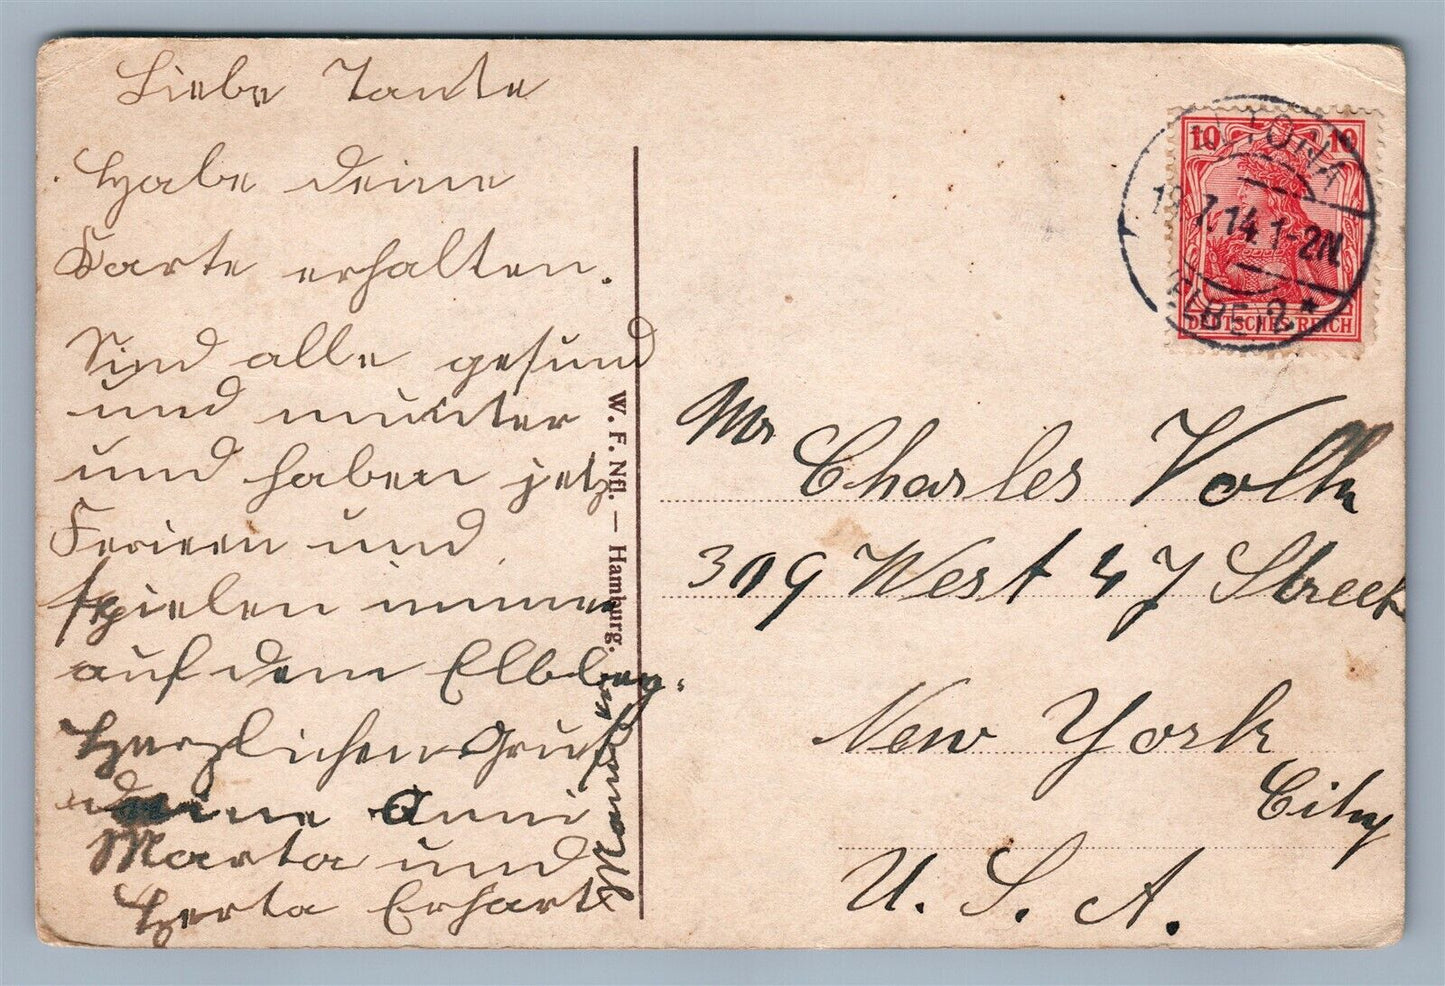 Liebe Tante
Habe deine
Karte erhalten.
Sind alle gesund
und munter
und haben jetz
Ferieen und
spielen immer
auf dem Elbberg.
Herzlichen Gruß
deine Anni
Marta und
Herta Erhart
W. F. Nfl. — Hamburg.
10 10
DEUTSCHES REICH
ALTONA
19.7.14.1-2N.
ELBE 2 *
Mr Charles Volk
319 West 47 Street
New York
City
U. S. A.